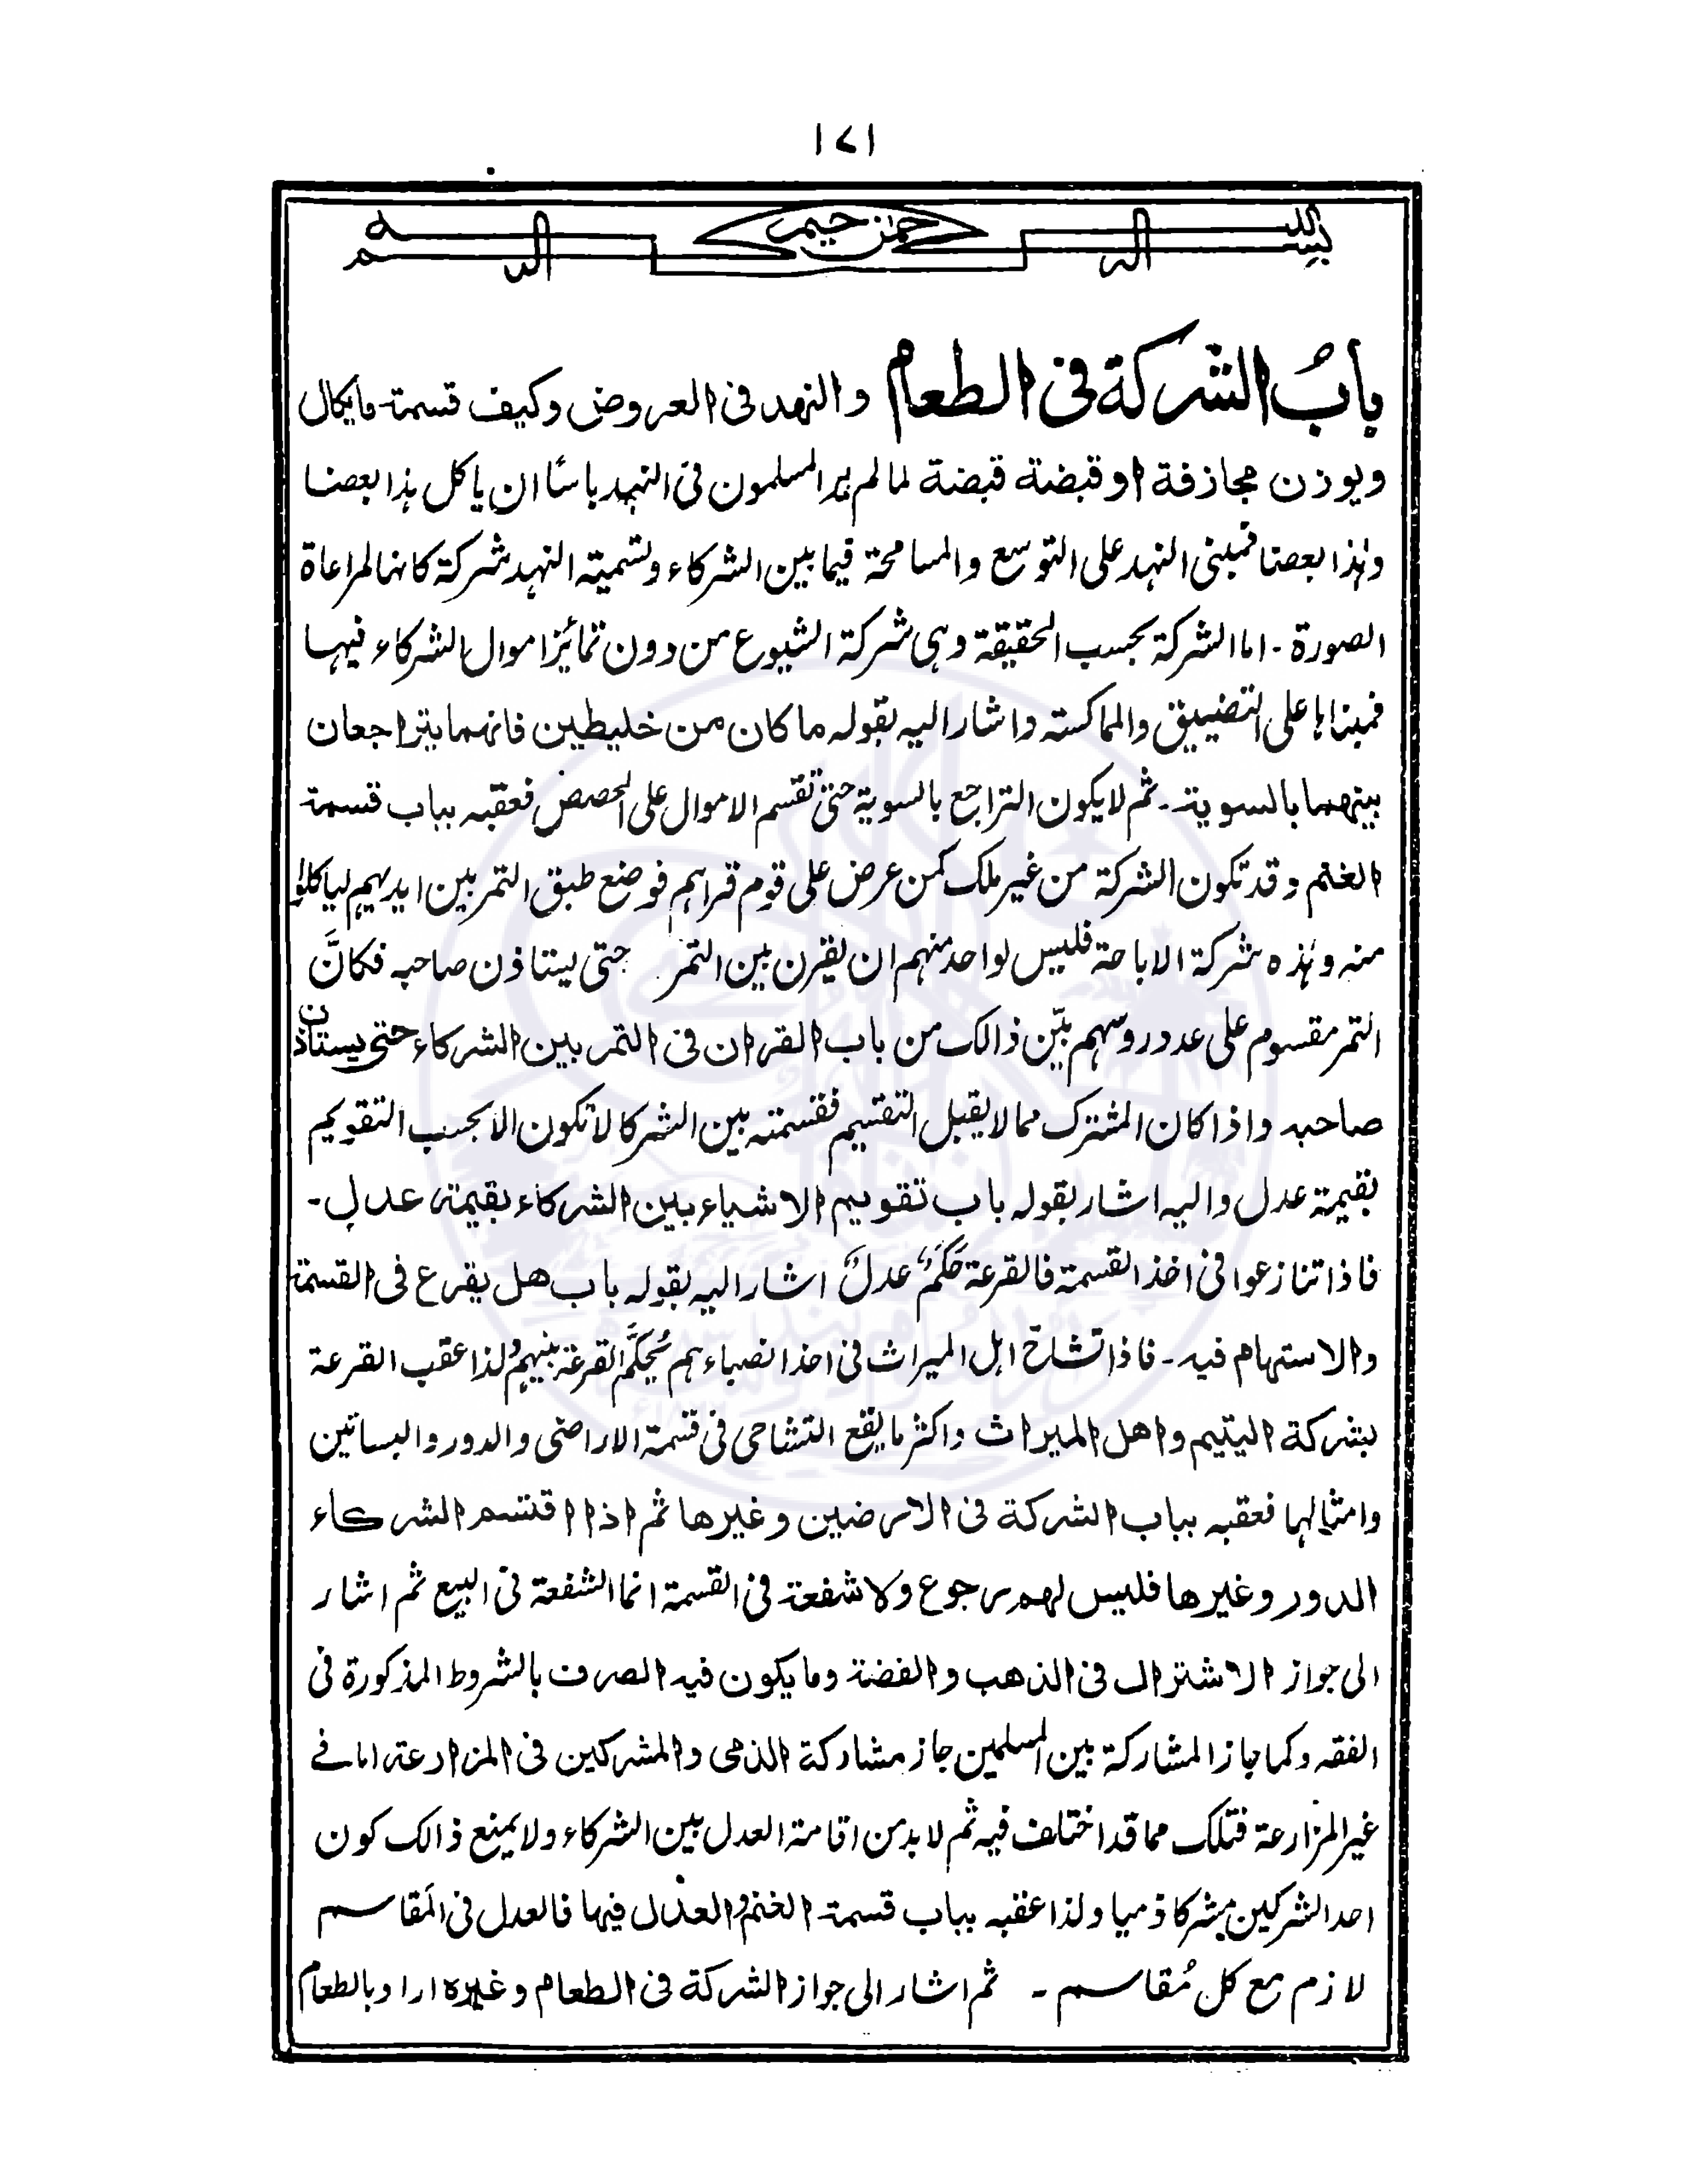 ١٧١
بسم الله الرحمن الرحيم
بابُ الشركة فى الطعام والنهد فى العروض وكيف قسمة ما يكال
ويوزن مجازفة او قبضة قبضة لما لم ير المسلمون فى النهد باسًا ان ياكل هذا بعضا
وهذا بعضا فمبنى النهد على التوسع والمسامحة فيما بين الشركاء وتسمية النهد شركة كانها لمراعاة
الصورة - اما الشركة بحسب الحقيقة وهى شركة الشيوع من دون تمائز اموال الشركاء فيها
فمبناها على التضييق والمماكسته واشار اليه بقوله ما كان من خليطين فانهما يتراجعان
بينهما بالسوية - ثم لا يكون التراجع بالسوية حتى تقسم الاموال على الحصص فعقبه بباب قسمة
الغنم وقد تكون الشركة من غير ملك كمن عرض على قوم قراهم فوضع طبق التمر بين ايديهم لياكلوا
منه وهذه شركة الاباحة فليس لواحد منهم ان يقرن بين التمر حتى يستاذن صاحبه فكانَّ
التمر مقسوم على عدد روسهم بيّن ذالك من باب القران فى التمر بين الشركاء حتى يستاذن
صاحبه واذا كان المشترك مما لا يقبل التقسيم فقسمته بين الشركا لا تكون الا بحسب التقويم
بقيمة عدل واليه اشار بقوله باب تقويم الاشياء بين الشركاء بقيمة عدل -
فاذا تنازعوا فى اخذ القسمة فالقرعة حَكَمٌ عدلٌ اشار اليه بقوله باب هل يقرع فى القسمة
والاستهام فيه - فاذا تشاحّ اهل الميراث فى اخذ انصباءهم تُحكَّم القرعة بينهم ولذا عقب القرعة
بشركة اليتيم واهل الميراث واكثر ما يقع التشاحى فى قسمة الاراضى والدور والبساتين
وامثالها فعقبه بباب الشركة فى الارضين وغيرها ثم اذا اقتسم الشركاء
الدور وغيرها فليس لهم رجوع ولا شفعة فى القسمة انما الشفعة فى البيع ثم اشار
الى جواز الاشتراك فى الذهب والفضة وما يكون فيه الصرف بالشروط المذكورة فى
الفقه وكما جاز المشاركة بين المسلمين جاز مشاركة الذمى والمشركين فى المزارعة اما فے
غير المزارعة فتلك مما قد اختلف فيه ثم لا بد من اقامة العدل بين الشركاء ولا يمنع ذالك كون
احد الشركين مشركا ذميا ولذا عقبه بباب قسمة الغنم والعدل فيها فالعدل فى المَقاسم
لازم مع كل مُقاسم - ثم اشار الى جواز الشركة فى الطعام وغيره اراد بالطعام